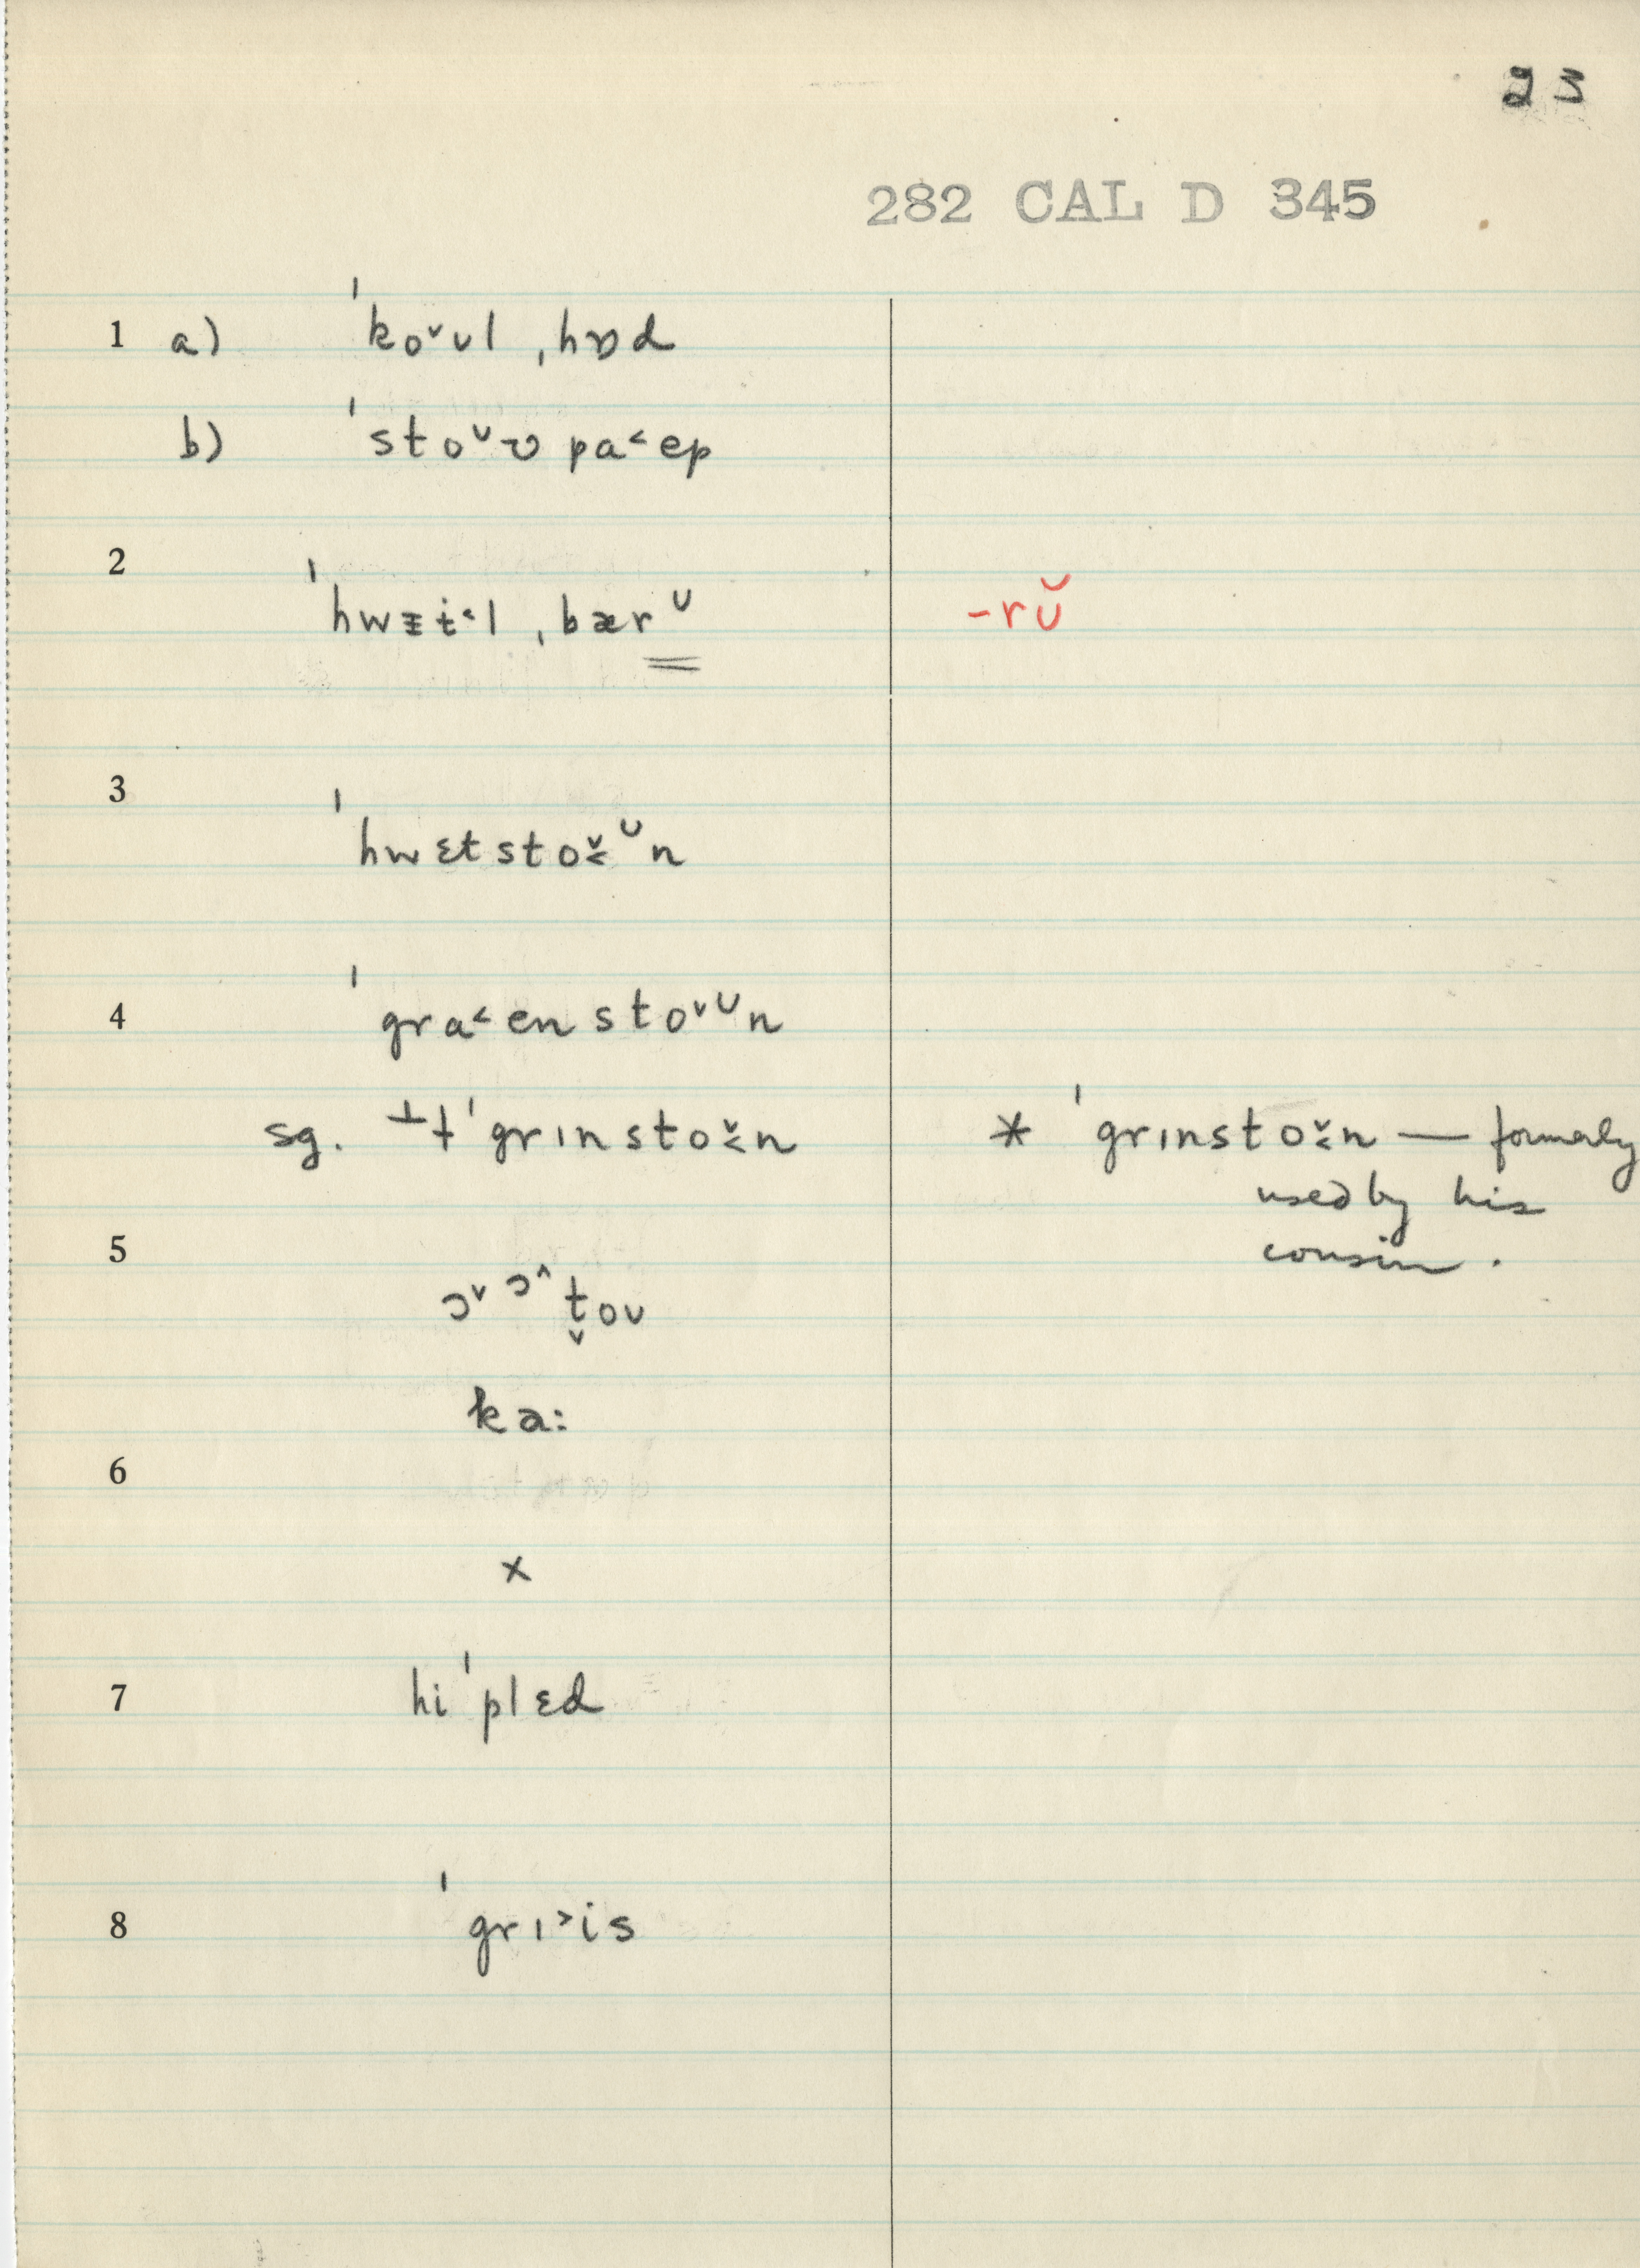 23
282 CAL D 345
1 a) ˈko˅ʊl ˌhɒd
b) ˈsto˅ʊ pa˂ep
2
ˈhwɛɨ˂l ˌbærᶷ -rʊ̆
3
ˈhwɛtsto˅˂ᶷn
4 ˈgra˂ensto˅ᶷn
sg. ⊥†ˈgrɪnsto˅˂n * ˈgrɪnsto˅˂n — formerly
used by his
5 cousin.
ɔ˅ɔ^t̬oʊ
ka:
6
x
7 hiˈplɛd
8 ˈgrɪ˃is